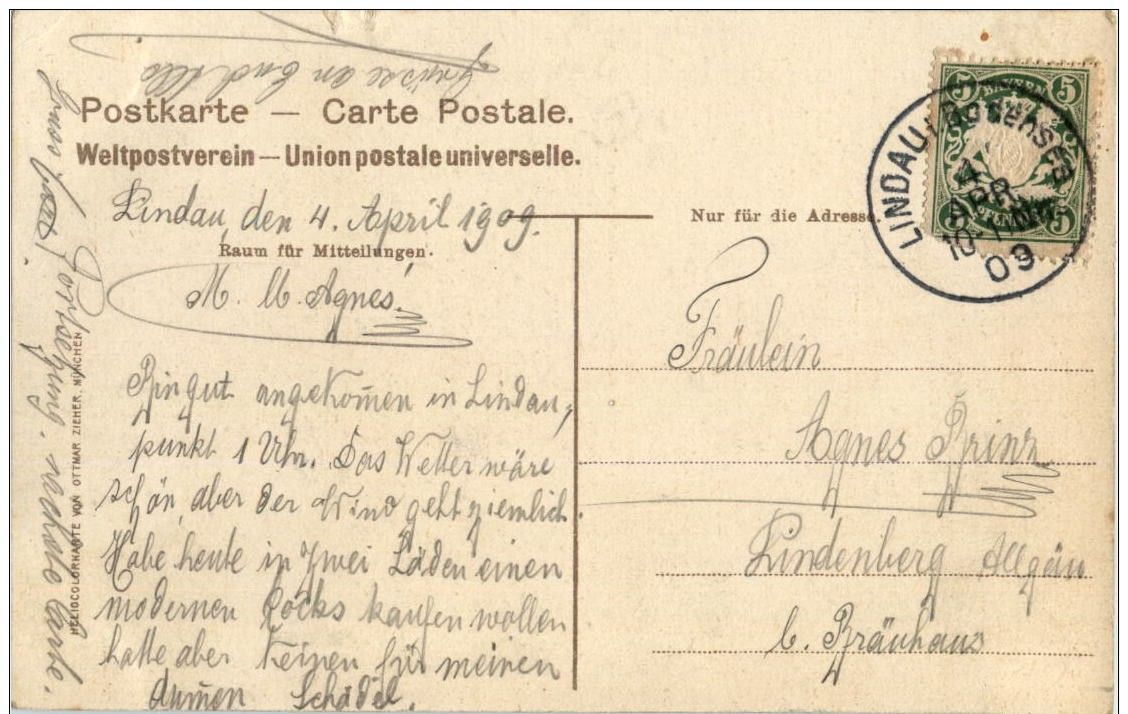 Grüsse an Euch Alle
Postkarte — Carte Postale.
Weltpostverein — Union postale universelle.
Lindau, den 4. April 1909.
Raum für Mitteilungen.
M. ll. Agnes!
Bin gut angekom̄en in Lindau,
punkt 1 Uhr. Das Wetter wäre
schön, aber der Wind geht ziemlich.
Habe heute in zwei Läden einen
modernen kaufen wollen
hatte aber keinen für meinen
dum̄en Schädel.
Fortsetzung. nächste Karte.
HELIOCOLORKARTE VON OTTMAR ZIEHER, MÜNCHEN
Nur für die Adresse.
5 BAYERN 5
5 PFENNIG 5
LINDAU (BODENSEE)
4
APR.
10-11 Nm
09
Fräulein
Agnes Prinz
Lindenberg Allgäu
b. Bräuhaus